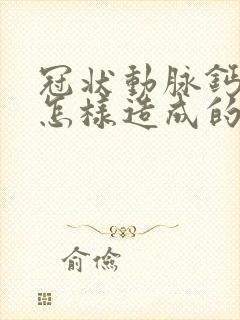 冠状動脉鈣
怎樣造成的
俞儉